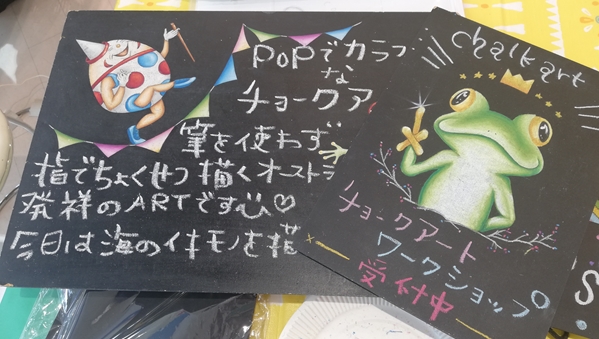 POPでカラフ
な
チョークア
筆を使わず
指でちょくせつ描くオーストラ
発祥のARTです♡
今日は海のイキモノを描
chalkart
チョークアート
ワークショップ
受付中
S